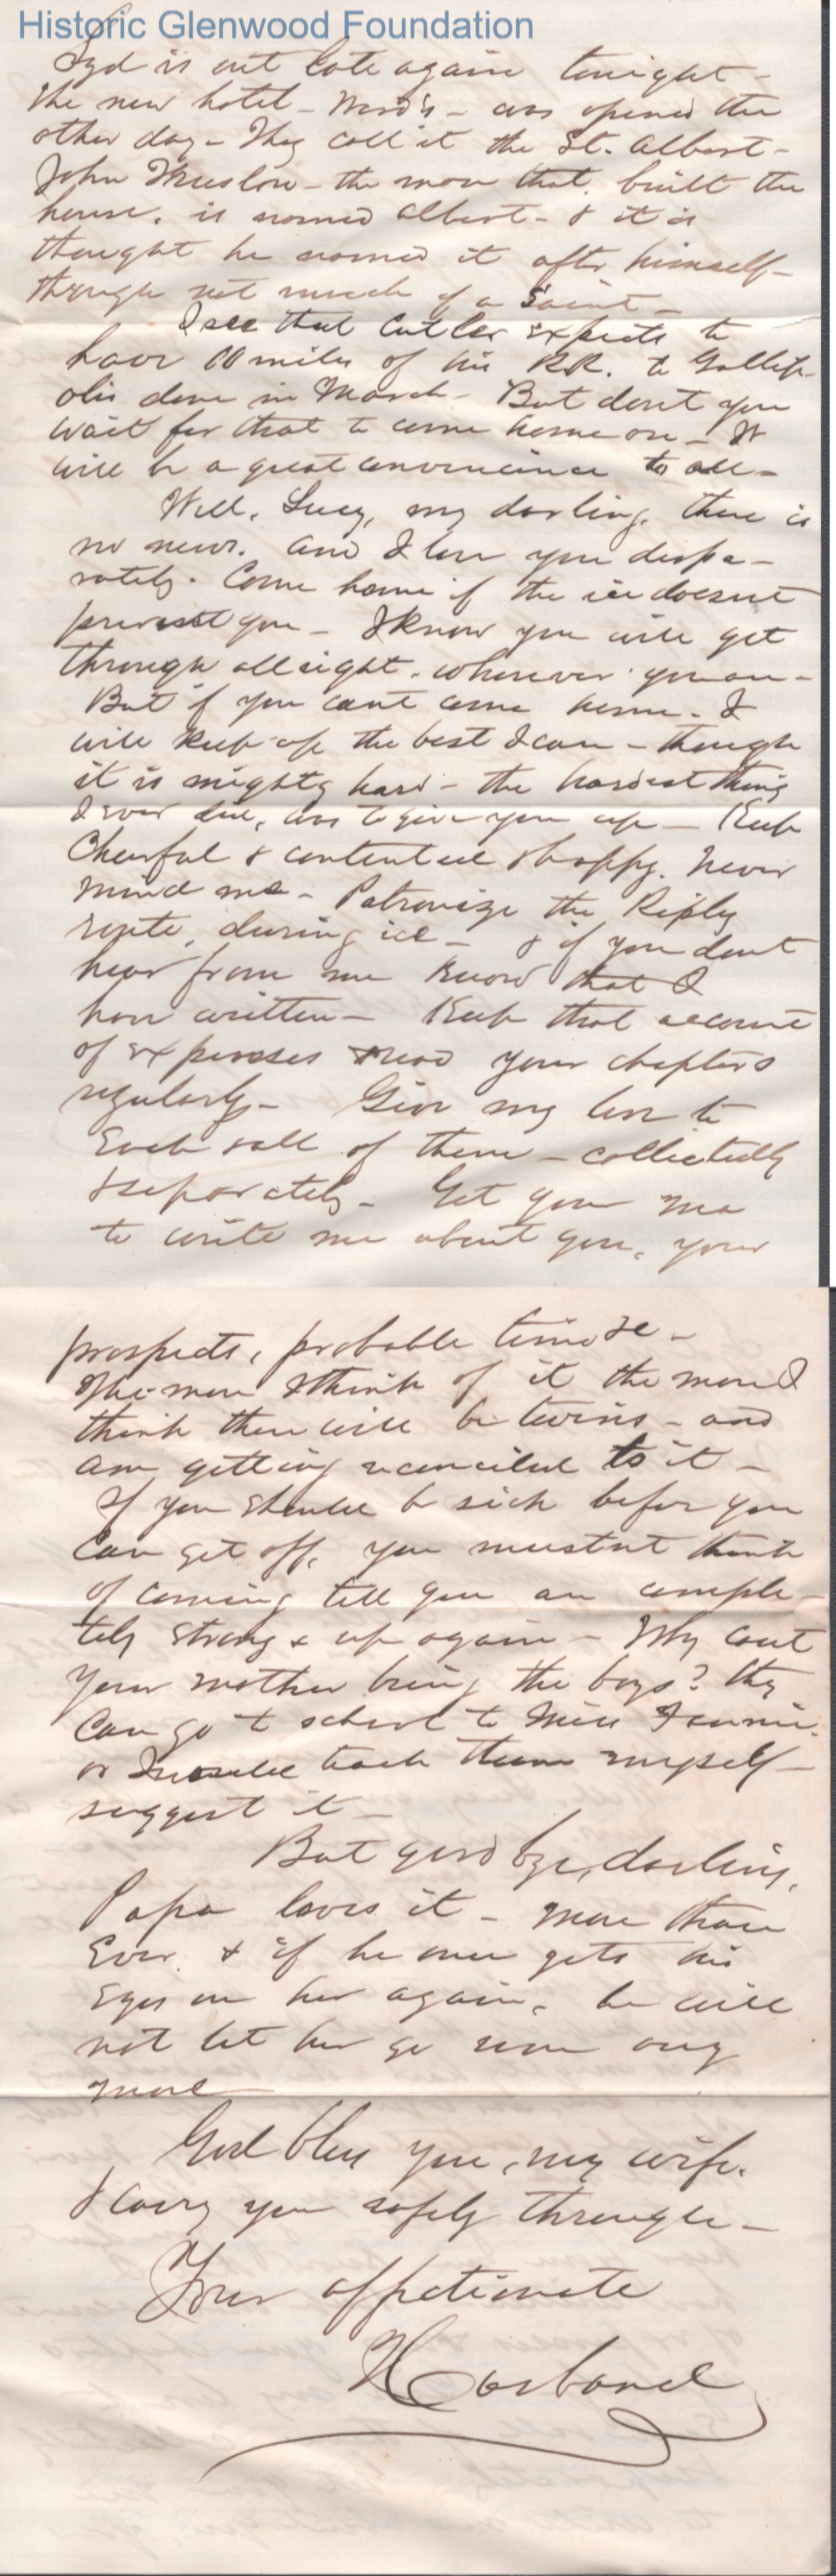 Historic Glenwood Foundation
Syd is out late again tonight -
The new hotel - Ward's - was opened the
other day - They call it the St. Albert -
John - the man that built the
house, is named Albert - & it is
thought he named it after himself -
though not much of a Saint -
I see that Cutler expects to
have 10 miles of his RR. to Gallip-
olis done in March - But dont you
wait for that to come home on - It
will be a great convenience to all -
Well, Lucy, my darling, there is
no news. and I love you despe-
rately. Come home if the ice doesnt
prevent you - I know you will get
through all right, wherever you are -
But if you cant come home - I
will keep up the best I can - though
it is mighty hard - the hardest thing
I ever did, was to give you up - Keep
Cheerful & contented & happy. Never
mind me - Patronize the Ripley
route, during ice - & if you dont
hear from me know that I
have written - Keep that account
of expenses & read your chapters
regularly - Give my love to
Each & all of them - collectedly
& separately - Get your ma
to write me about you, your
prospects, probable time &c -
The more I think of it the more I
think there will be twins - and
am getting reconciled to it -
If you should be sick before you
can get off, you mustnt think
of coming till you are comple-
tely strong & up again - Why cant
your mother bring the boys? they
can go to school to Miss Fannie,
or I would teach them myself -
suggest it -
But good bye, darling,
Papa loves it - more than
Ever. & if he once gets his
Eyes on her again, he will
not let her go any
more
God bless you, my wife.
& carry you safely through -
Your affectionate
Husband